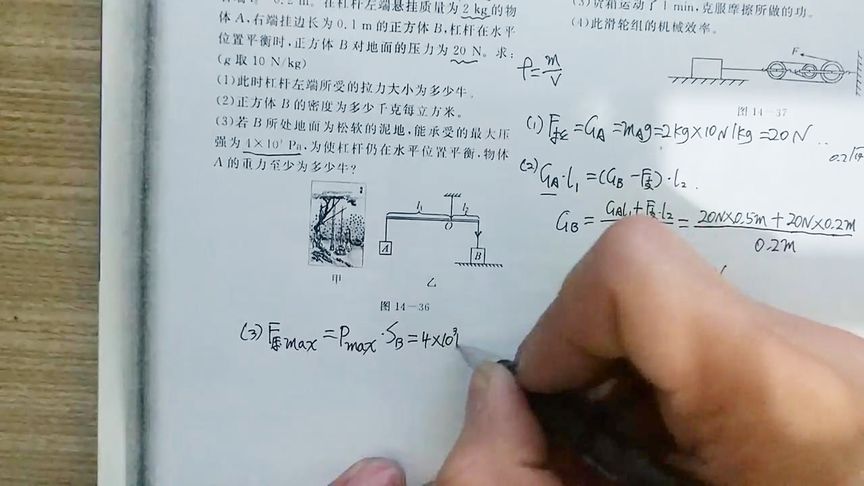 在杠杆左端悬挂质量为2 kg的物
体A,右端挂边长为0.1 m的正方体B,杠杆在水平
位置平衡时,正方体B对地面的压力为20 N。求:
(g取10 N/kg)
(1)此时杠杆左端所受的拉力大小为多少牛。
(2)正方体B的密度为多少千克每立方米。
(3)若B所处地面为松软的泥地,能承受的最大压
强为4×10³ Pa,为使杠杆仍在水平位置平衡,物体
A的重力至少为多少牛?
l₁ l₂
O
A
B
甲 乙
图14-36
(3)F压max=Pmax·SB=4×10³
(3)货箱运动了1 min,克服摩擦所做的功。
(4)此滑轮组的机械效率。
ρ=m/V
F
图14-37
(1)F拉=GA=mAg=2kg×10N/kg=20N
(2)GA·l₁=(GB-F支)·l₂
GB=(GAl₁+F支·l₂)/=(20N×0.5m+20N×0.2m)/0.2m